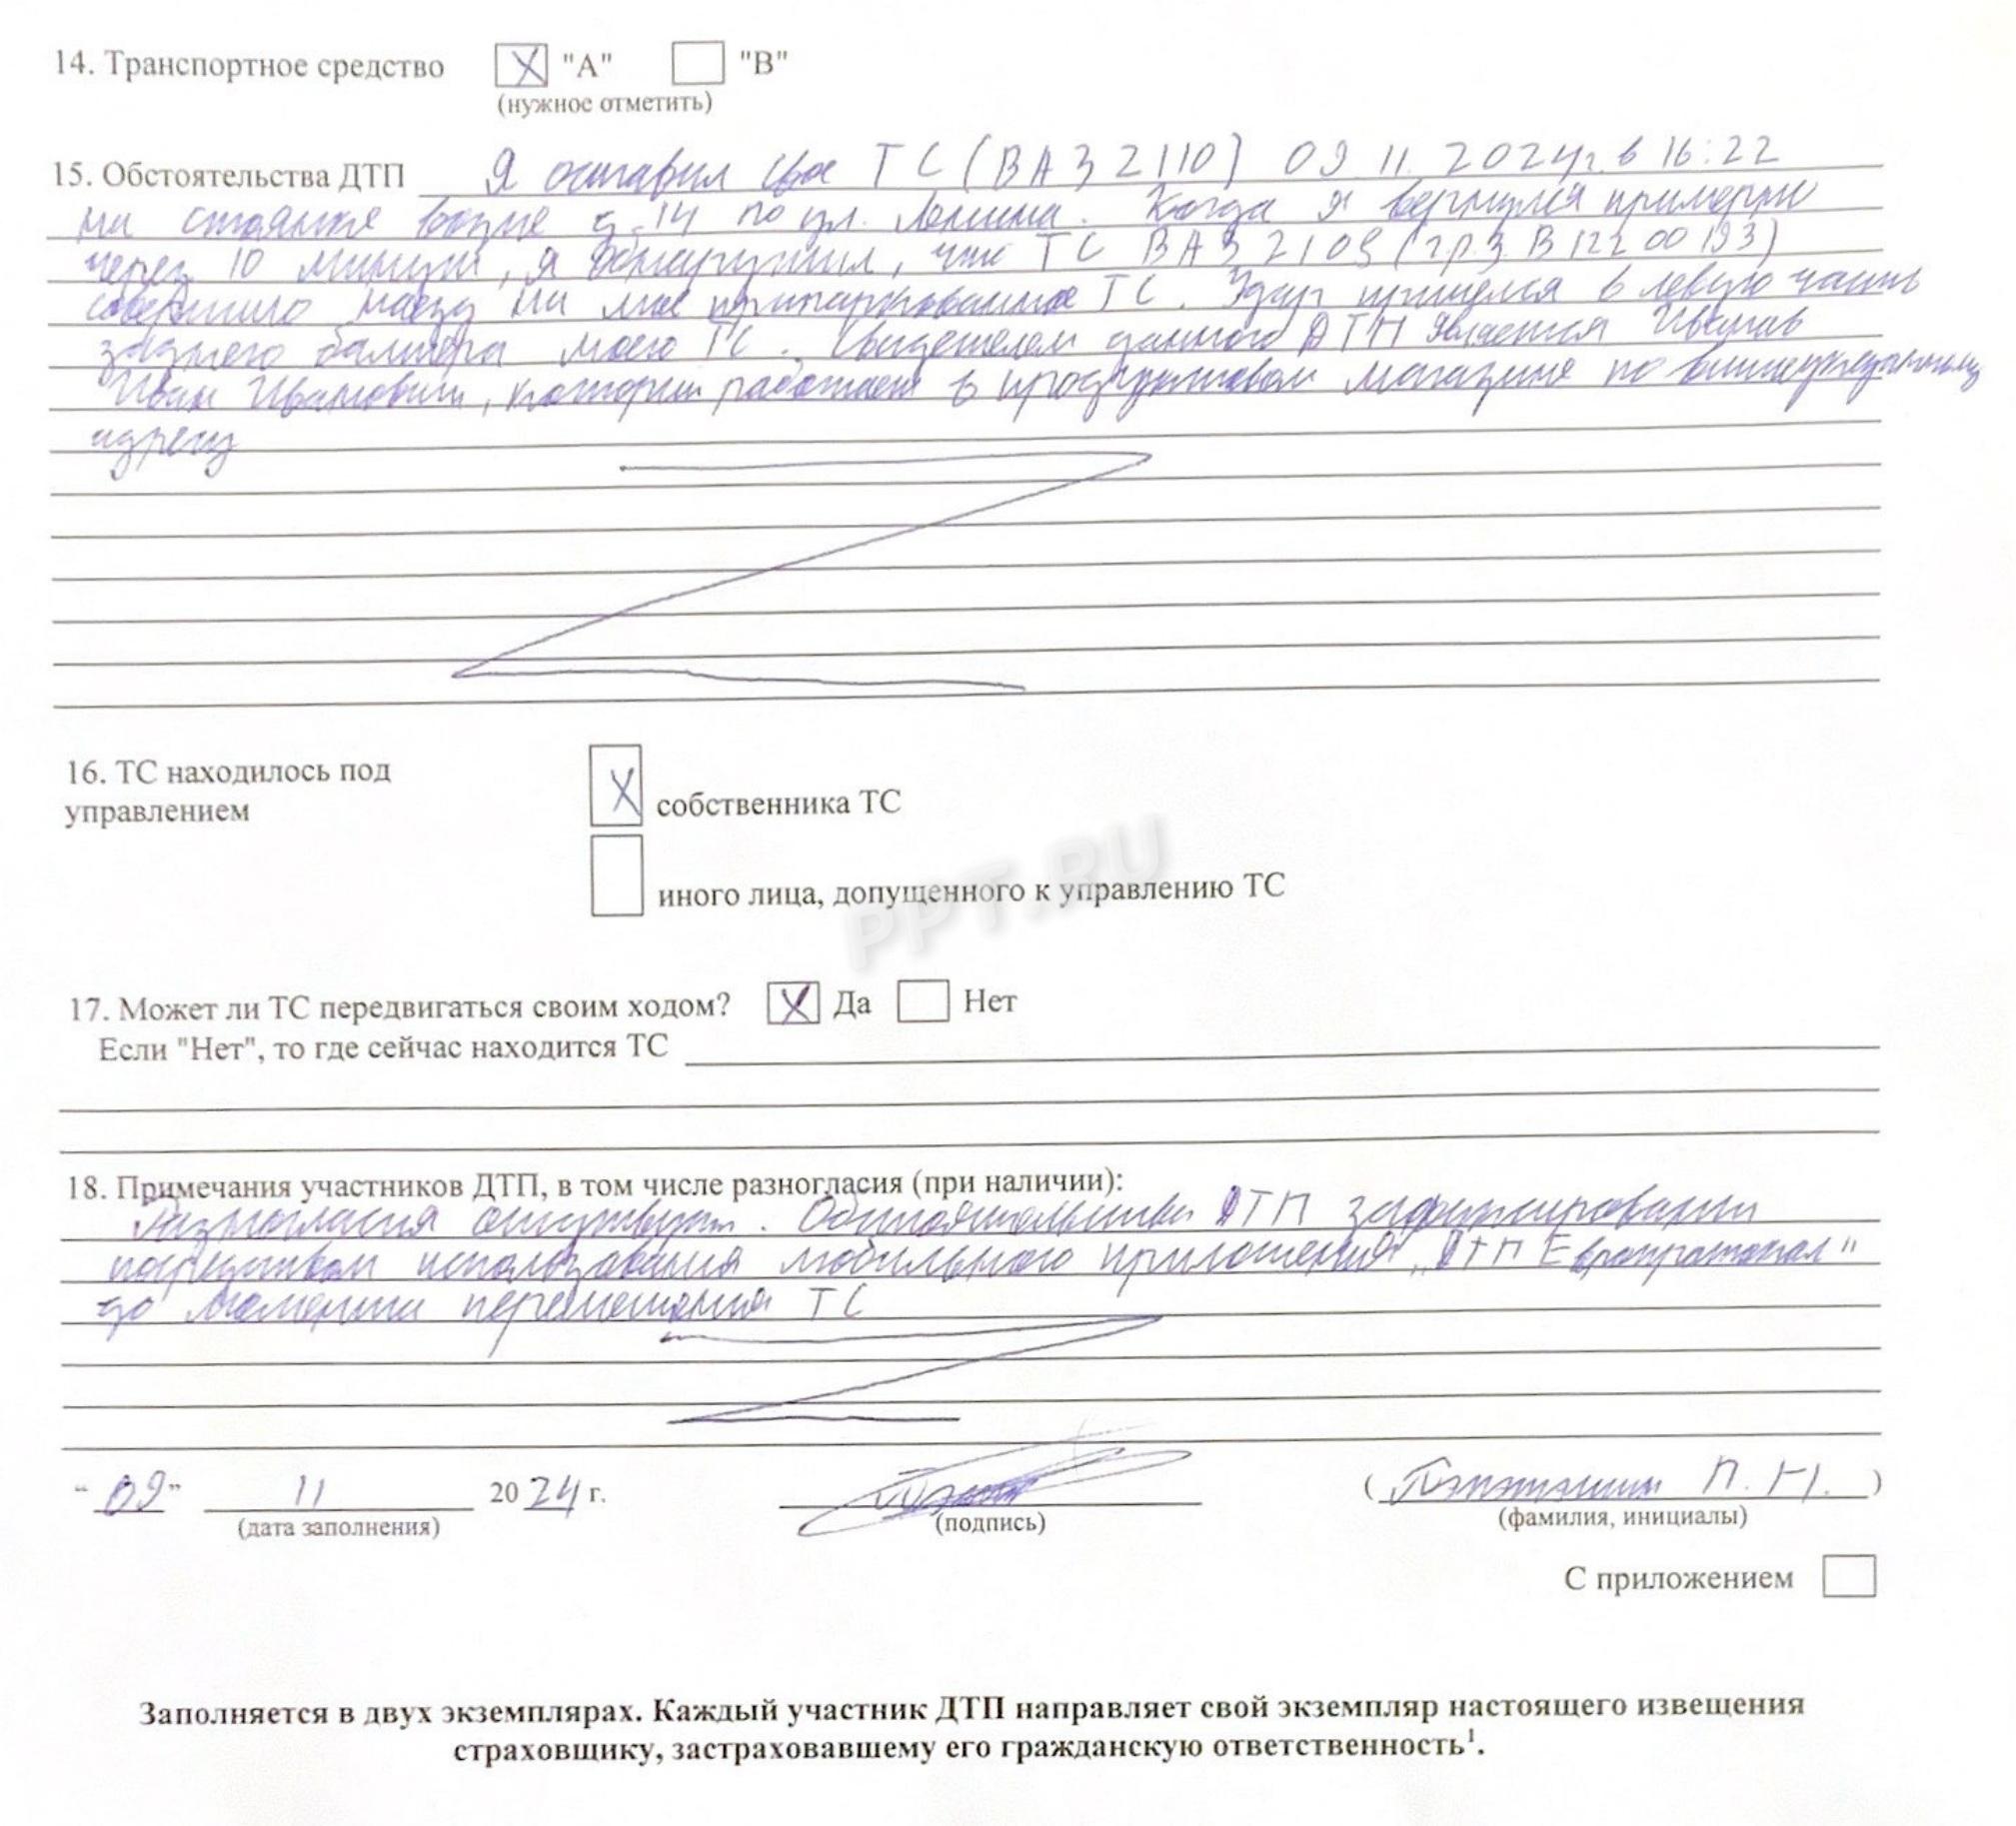 14. Транспортное средство X "А" "В"
(нужное отметить)
15. Обстоятельства ДТП Я оставил свое ТС (ВАЗ 2110) 09.11.2024г. в 16:22
на стоянке возле д. 14 по ул. Ленина. Когда я вернулся примерно
через 10 минут, я обнаружил, что ТС ВАЗ 2109 (гр.з. В 122 00 193)
совершило наезд на мое припаркованное ТС. Удар пришелся в левую часть
заднего бампера моего ТС. Свидетелем данного ДТП является Иванов
Иван Иванович, который работает в продуктовом магазине по вышеуказанному
адресу
16. ТС находилось под
управлением
X собственника ТС
иного лица, допущенного к управлению ТС
PPT.RU
17. Может ли ТС передвигаться своим ходом? X Да Нет
Если "Нет", то где сейчас находится ТС
18. Примечания участников ДТП, в том числе разногласия (при наличии):
Разногласия отсутствуют. Обстоятельства ДТП зафиксированы
посредством использования мобильного приложения „ДТП Европротокол"
до момента перемещения ТС
“ 09 ” 11 20 24 г. ( П. Н. )
(дата заполнения) (подпись) (фамилия, инициалы)
С приложением
Заполняется в двух экземплярах. Каждый участник ДТП направляет свой экземпляр настоящего извещения
страховщику, застраховавшему его гражданскую ответственность¹.